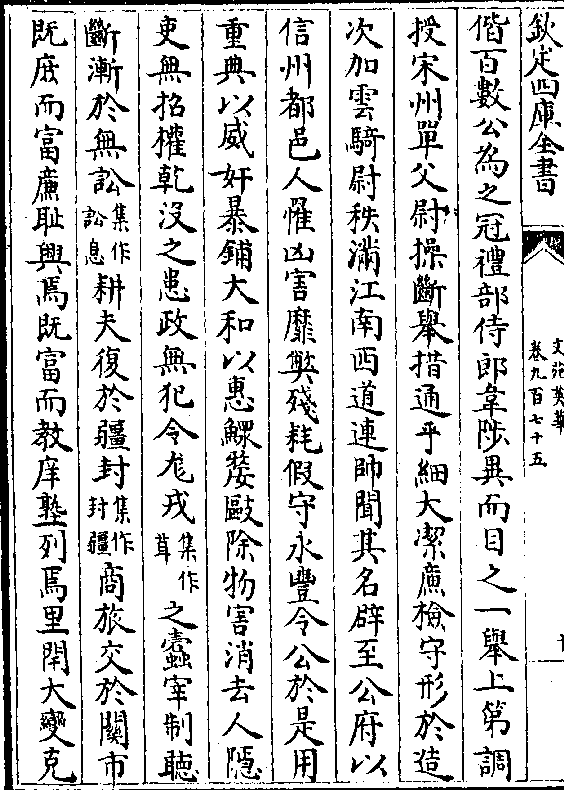 欽定四庫全書
文苑英華
卷九百七十五
偕百數公為之冠禮部侍郎韋陟異而目之一舉上第調
授宋州單父尉操斷舉措通乎細大潔廉檢守形於造
次加雲騎尉秩滿江南西道連帥聞其名辟至公府以
信州都邑人罹凶害靡弊殘耗假守永豐令公於是用
重典以威奸暴鋪大和以惠鰥嫠敺除物害消去人隱
吏無招權乾没之患政無犯令尨戎集作茸之蠹宰制聽
斷漸於無訟集作訟息耕夫復於疆封集作封疆商旅交於關市
既庶而富亷恥興焉既富而教庠塾列焉里閈大變克